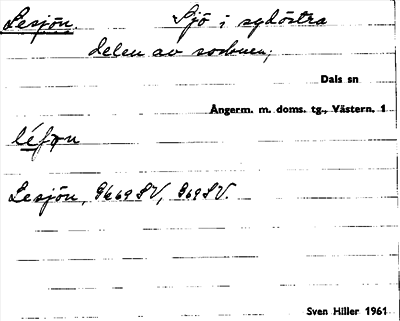 Lesjön. Sjö i sydöstra
delen av socknen;
Dals sn
Ångerm. m. doms. tg., Västern. 1
Lesjön, Gk69SV, 969SV.
Sven Hiller 1961